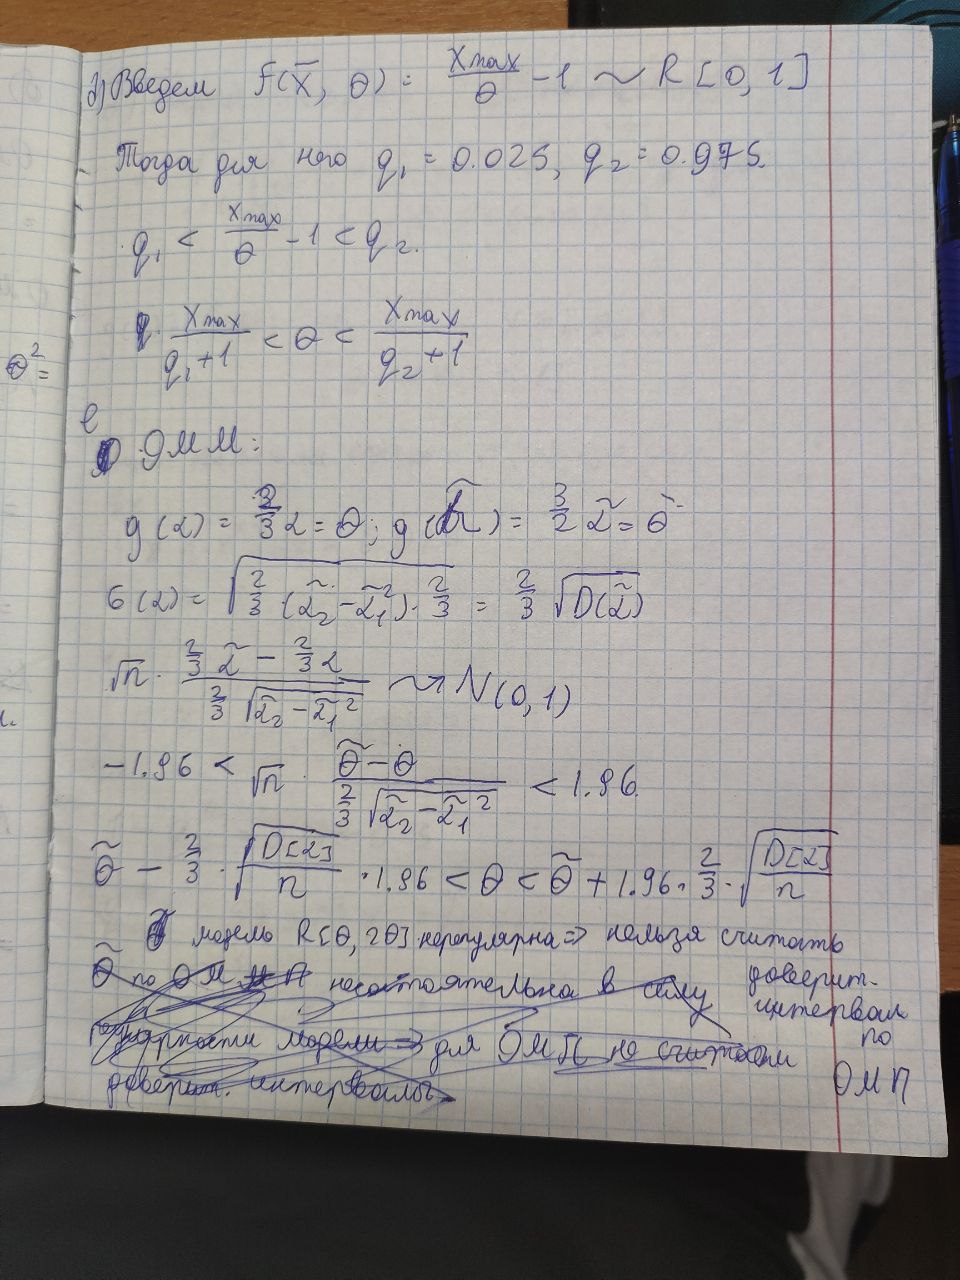 д) Введем f(x̄, θ) = Xmax/θ - 1 ~ R[0, 1]
Тогда для него q₁ = 0.025, q₂ = 0.975.
q₁ < Xmax/θ - 1 < q₂.
Xmax/(q₁+1) < θ < Xmax/(q₂+1)
θ² =
е
ОММ:
g(α) = 2/3 α = θ; g(α̃) = 3/2 α̃ = θ̃
б(α) = √(2/3 (α̃₂ - α̃₁²) · 2/3) = 2/3 √D(α̃)
√n · (2/3 α̃ - 2/3 α)/(2/3 √(α̃₂ - α̃₁²)) ⇝ N(0, 1)
-1.96 < √n · (θ̃ - θ)/(2/3 √(α̃₂ - α̃₁²)) < 1.96.
θ̃ - 2/3 · √(D[α]/n) · 1.96 < θ < θ̃ + 1.96 · 2/3 · √(D[α]/n)
модель R[θ, 2θ] нерегулярна => нельзя считать
доверит.
интервал
по
ОМП
θ̃ по ОМП несостоятельна в силу
модели => для ОМП не считаем
доверит. интервалы